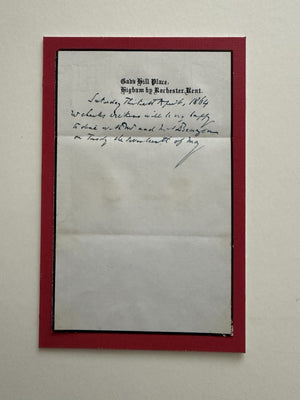 Gads Hill Place,
Higham by Rochester, Kent.
Saturday Thirtieth April, 1864
Mr Charles Dickens will be very happy
to dine with Mr and Mrs
on Tuesday the seventeenth of May